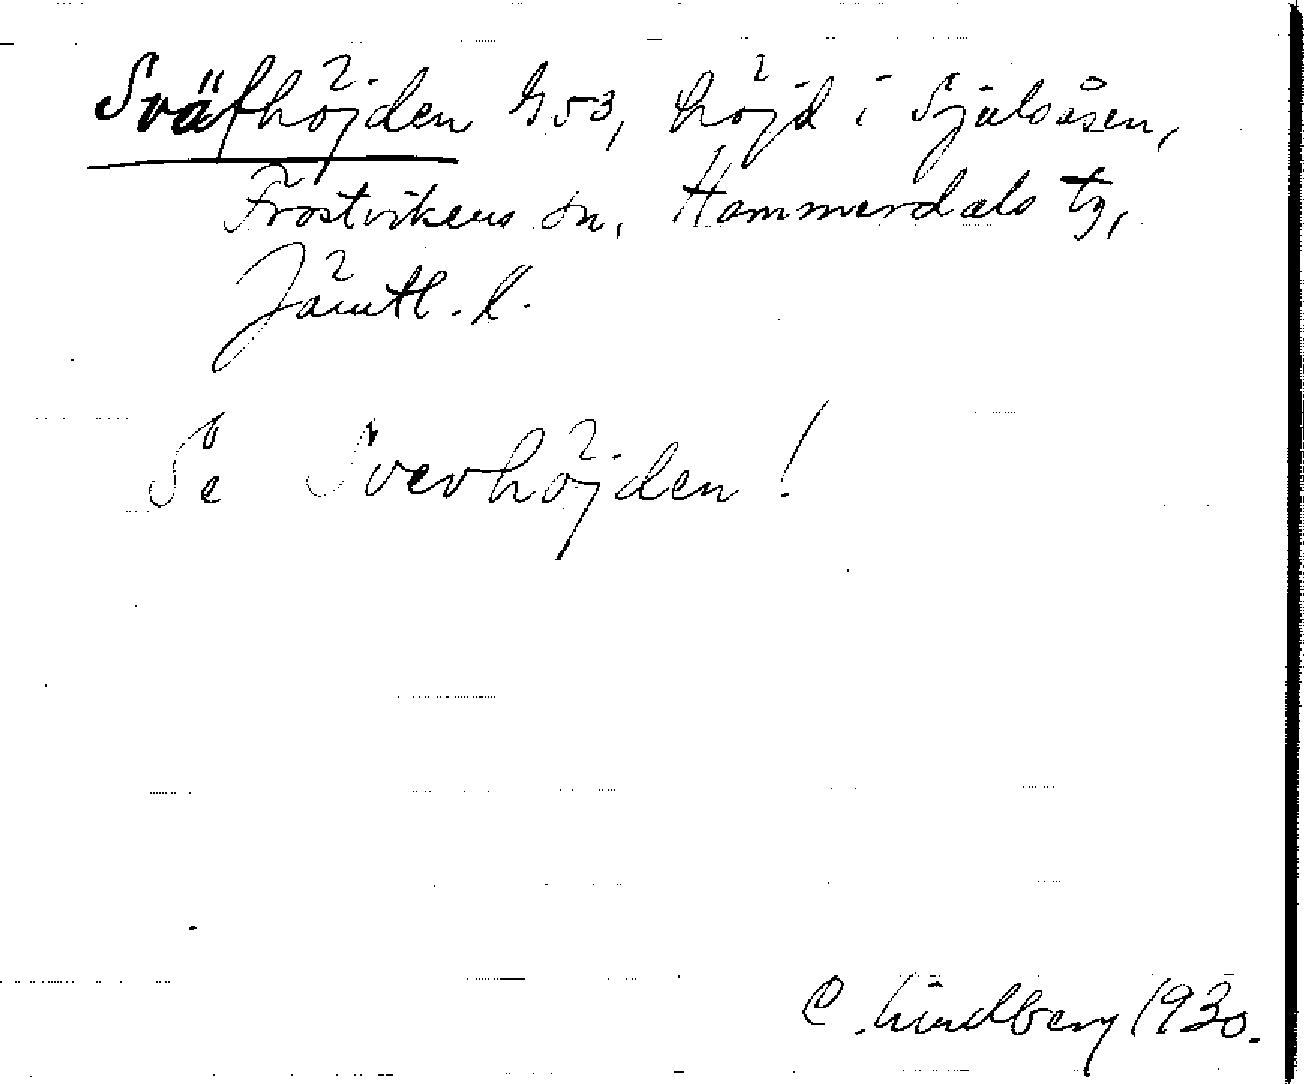 Sväfhöjden 953, höjd i Själsåsen,
Frostvikens sn, Hammerdals tg,
Jämtl. l.
Se Svevhöjden!
C. Lindberg 1930.